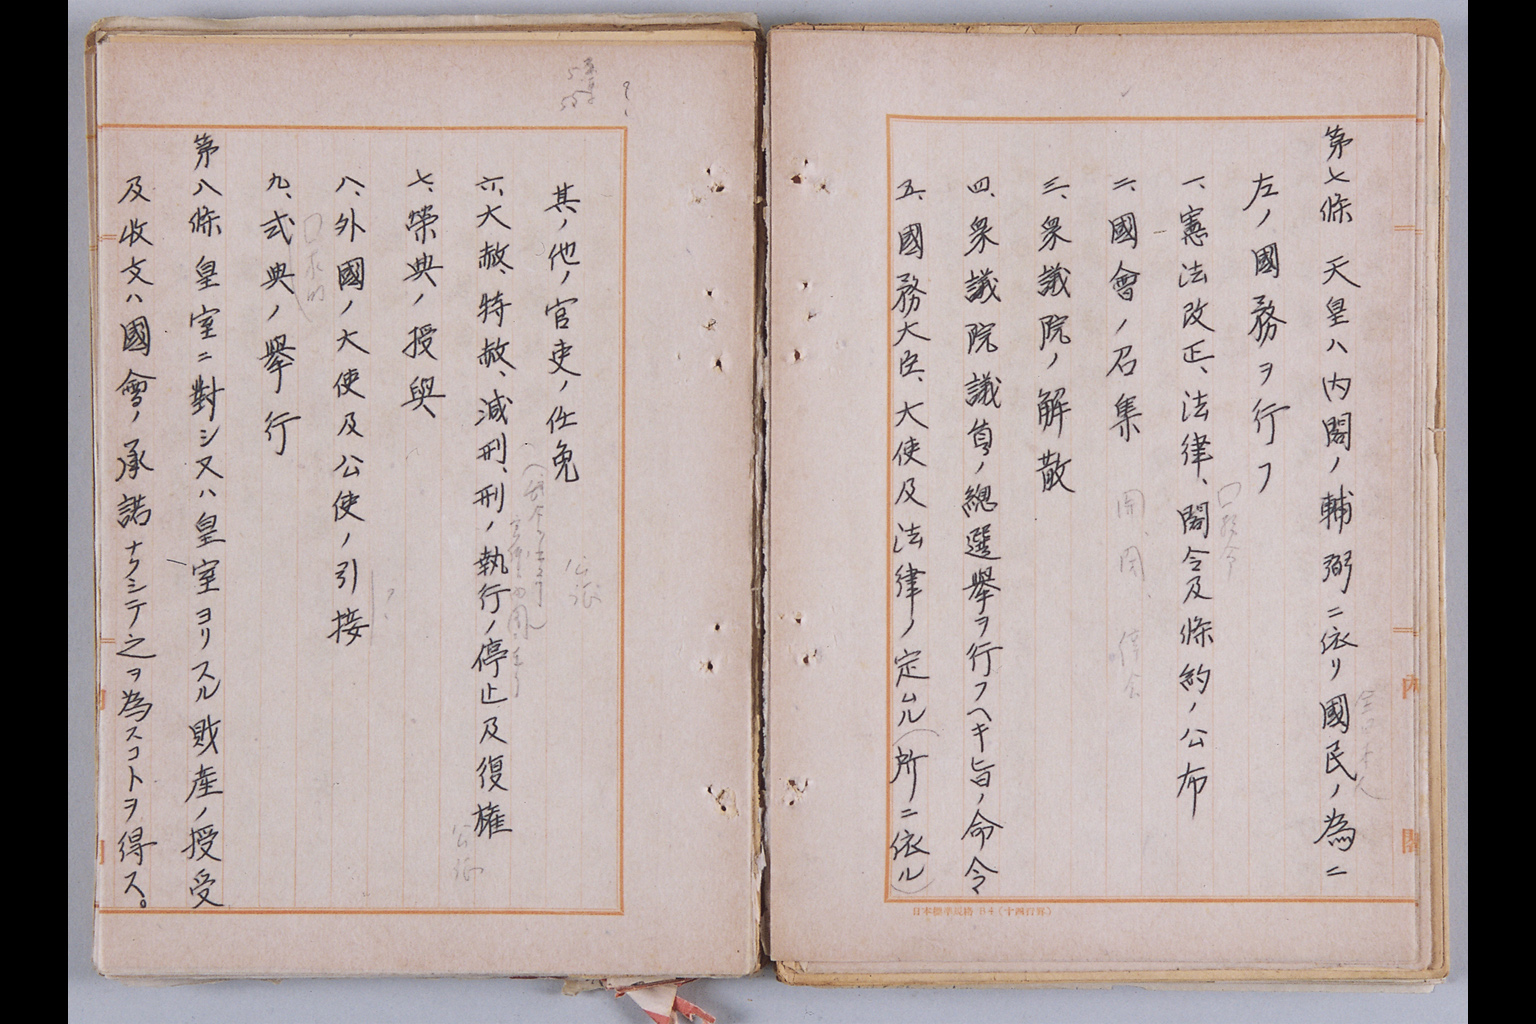 第七條 天皇ハ内閣ノ輔弼ニ依リ國民ノ為ニ
左ノ國務ヲ行フ
一、憲法改正、法律、閣令及條約ノ公布
二、國會ノ召集
開、閉、停会
三、衆議院ノ解散
四、衆議院議員ノ總選擧ヲ行フヘキ旨ノ命令
五、國務大臣、大使及法律ノ定ムル(所ニ依ル)
日本標準規格 B4(十四行罫)
内閣
其ノ他ノ官吏ノ任免
六、大赦、特赦、減刑、刑ノ執行ノ停止及復権
七、榮典ノ授與
八、外國ノ大使及公使ノ引接
?
九、式典ノ擧行
第八條 皇室ニ對シ又ハ皇室ヨリスル財産ノ授受
及收支ハ國會ノ承諾ナクシテ之ヲ為スコトヲ得ス。